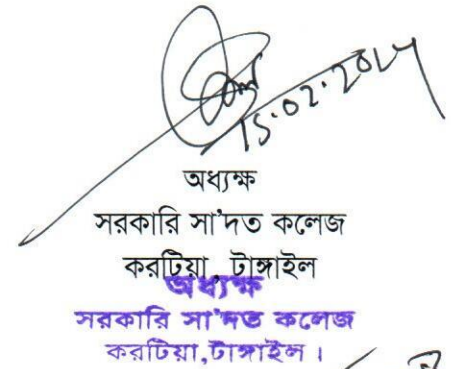 অধ্যক্ষ
সরকারি সা'দত কলেজ
করটিয়া, টাঙ্গাইল
অধ্যক্ষ
সরকারি সা'দত কলেজ
করটিয়া,টাঙ্গাইল।